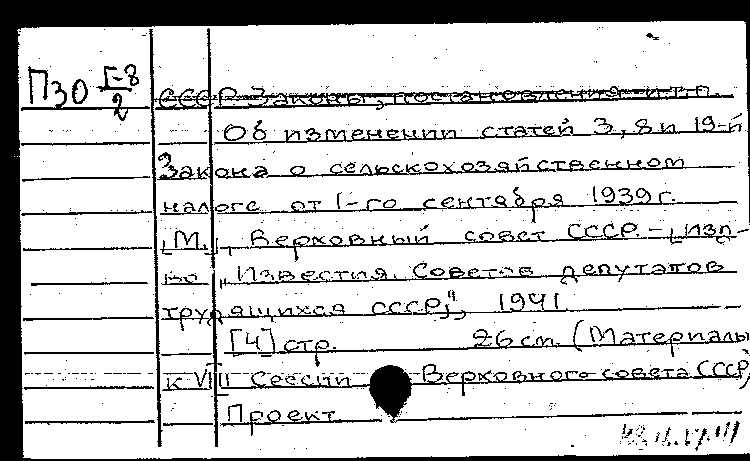 ПЗО I-8/2
СССР Законы, постановления и т.п.
Об изменении статей 3, 8 и 19-й
Закона о сельскохозяйственном
налоге от I-го сентября 1939 г.
[М.], Верховный совет СССР. – [изд-
во „Известия. Советов депутатов
трудящихся СССР",], 1941
[4] стр. 26 см. (Материалы
к VIII Сессии Верховного совета СССР)
Проект